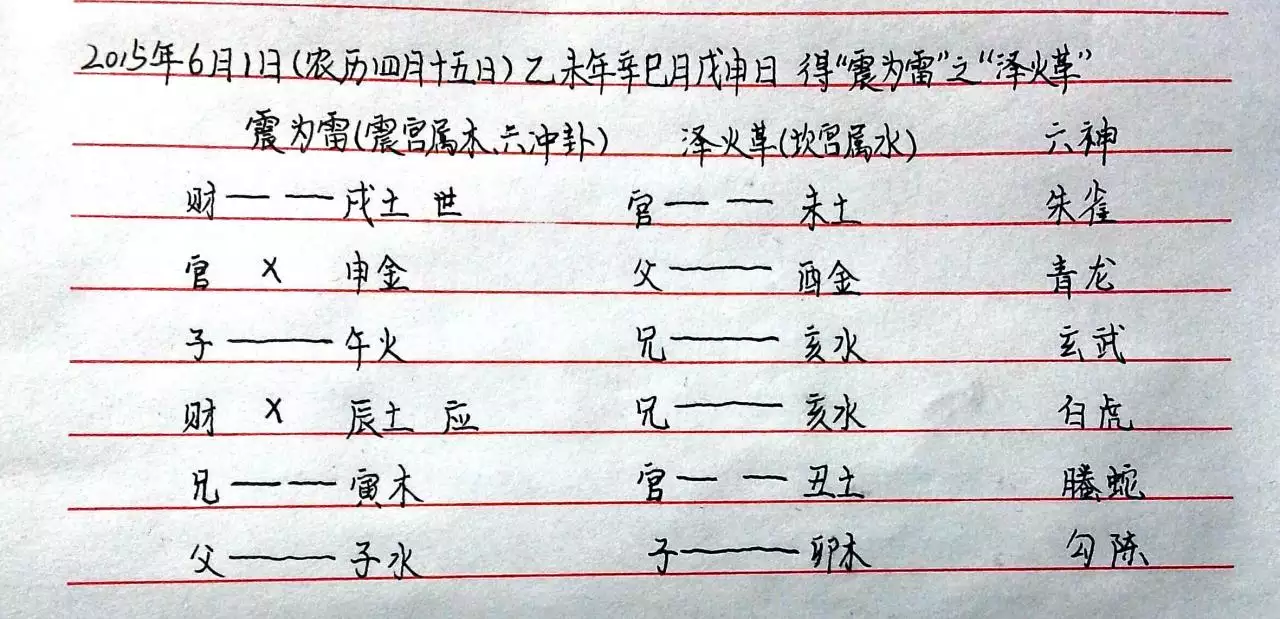 2015年6月1日(农历四月十五日)乙未年辛巳月戊申日 得"震为雷"之"泽火革"
震为雷(震宫属木、六冲卦) 泽火革(坎宫属水) 六神
财 — — 戌土 世 官 — — 未土 朱雀
官 × 申金 父 —— 酉金 青龙
子 —— 午火 兄 —— 亥水 玄武
财 × 辰土 应 兄 —— 亥水 白虎
兄 — — 寅木 官 — — 丑土 螣蛇
父 —— 子水 子 —— 卯木 勾陈